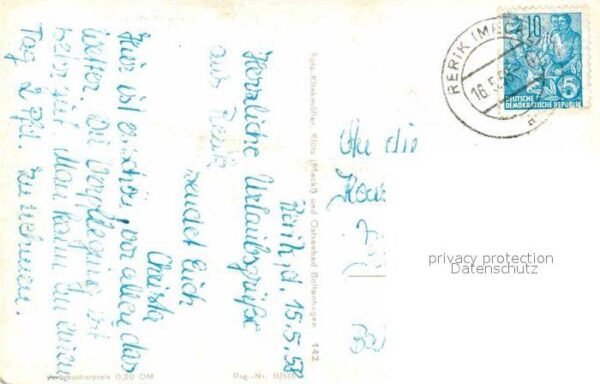 Rerik, d. 15.5.58
Herzliche Urlaubsgrüße
aus Rerik
sendet Euch
Christa
Hier ist es schön, vor allem das
Wetter. Die Verpflegung ist
sehr gut. Man kann in einem
Tag 2 Pfd. zunehmen.
Foto-Klinkmüller, Klütz (Meckl) und Ostseebad Boltenhagen 142
Verbraucherpreis 0,20 DM
Reg.-Nr.
An die
RERIK
16.5.
10
5
DEUTSCHE
DEMOKRATISCHE REPUBLIK
privacy protection
Datenschutz